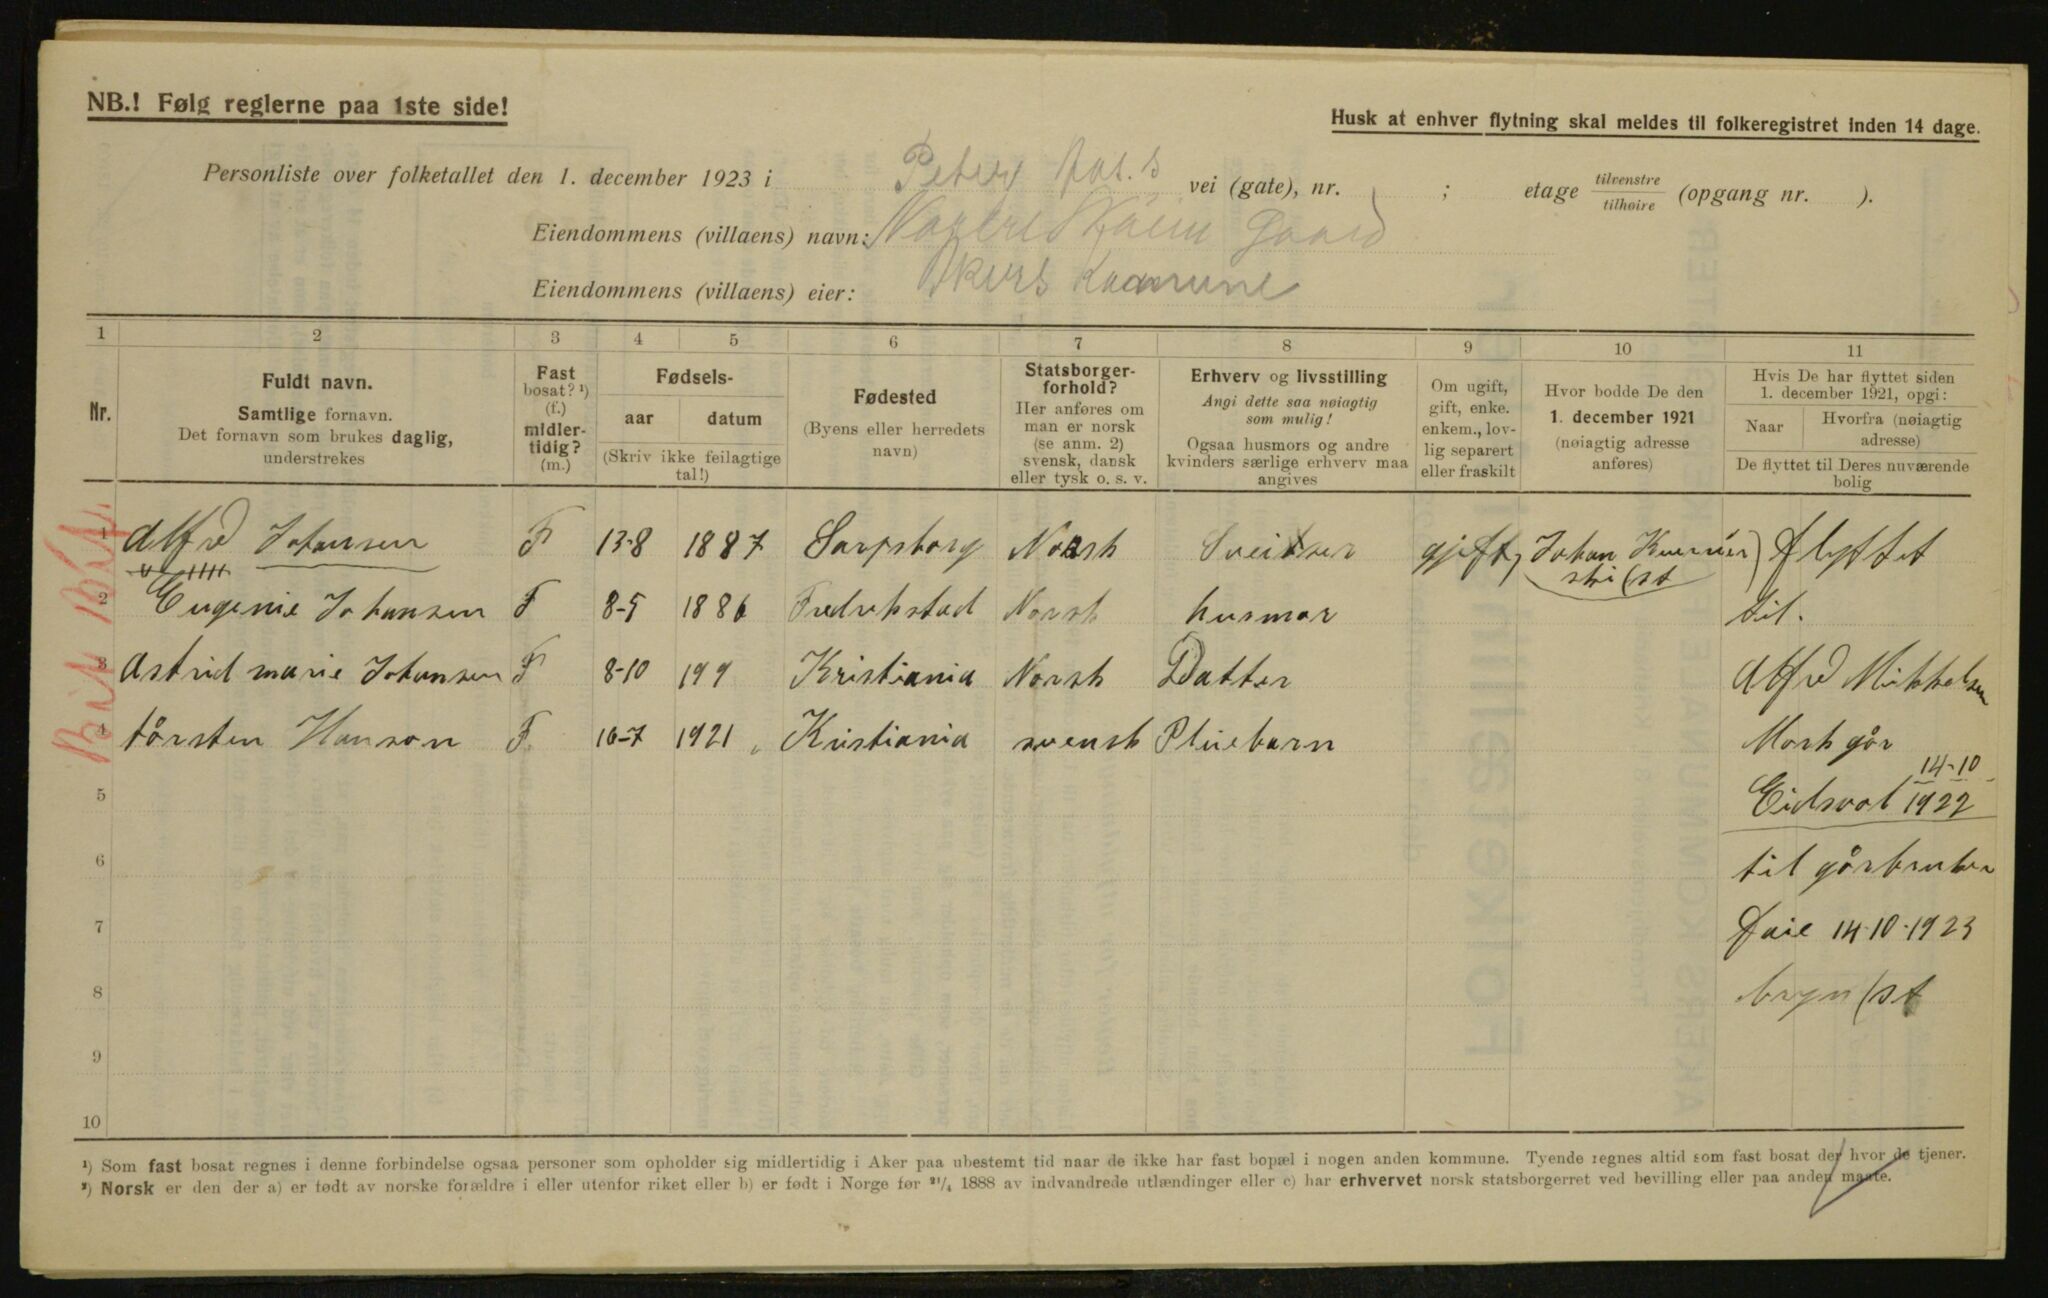 NB.! Følg reglerne paa 1ste side!
Husk at enhver flytning skal meldes til folkeregistret inden 14 dage.
Personliste over folketallet den 1. december 1923 i vei (gate), nr. ; etage tilvenstre tilhøire (opgang nr. ).
Eiendommens (villaens) navn: Gaard
Eiendommens (villaens) eier: Akers Komune
1 2 3 4 5 6 7 8 9 10 11
Nr.
Fuldt navn.
Samtlige fornavn.
Det fornavn som brukes daglig,
understrekes
Fast
bosat? ¹)
(f.)
midler-
tidig?
(m.)
Fødsels-
aar datum
(Skriv ikke feilagtige
tal!)
Fødested
(Byens eller herredets
navn)
Statsborger-
forhold?
Her anføres om
man er norsk
(se anm. 2)
svensk, dansk
eller tysk o. s. v.
Erhverv og livsstilling
Angi dette saa nøiagtig
som mulig!
Ogsaa husmors og andre
kvinders særlige erhverv maa
angives
Om ugift,
gift, enke.
enkem., lov-
lig separert
eller fraskilt
Hvor bodde De den
1. december 1921
(nøiagtig adresse
anføres)
Hvis De har flyttet siden
1. december 1921, opgi:
Naar Hvorfra (nøiagtig
adresse)
De flyttet til Deres nuværende
bolig
1 Alfred Johansen F 13-8 1887 Sarpsborg Norsk Sveitser gjift, Johan flyttet
2 Eugenie Johansen F 8-5 1886 Fredrikstad Norsk husmor til.
3 Astrid marie Johansen F 8-10 199 Kristiania Norsk Datter Alfred Mikkelsen
4 tårsten Hanson F. 16-7 1921 Kristiania svensk Pliebarn Mork går
14-10
5 Eidsvol 1922
6 til gårbruker
7 14.10.1923
8 bryn st
9
10
¹) Som fast bosat regnes i denne forbindelse ogsaa personer som opholder sig midlertidig i Aker paa ubestemt tid naar de ikke har fast bopæl i nogen anden kommune. Tyende regnes altid som fast bosat der hvor de tjener.
²) Norsk er den der a) er født av norske forældre i eller utenfor riket eller b) er født i Norge før ²¹/₄ 1888 av indvandrede utlændinger eller c) har erhvervet norsk statsborgerret ved bevilling eller paa anden maate.